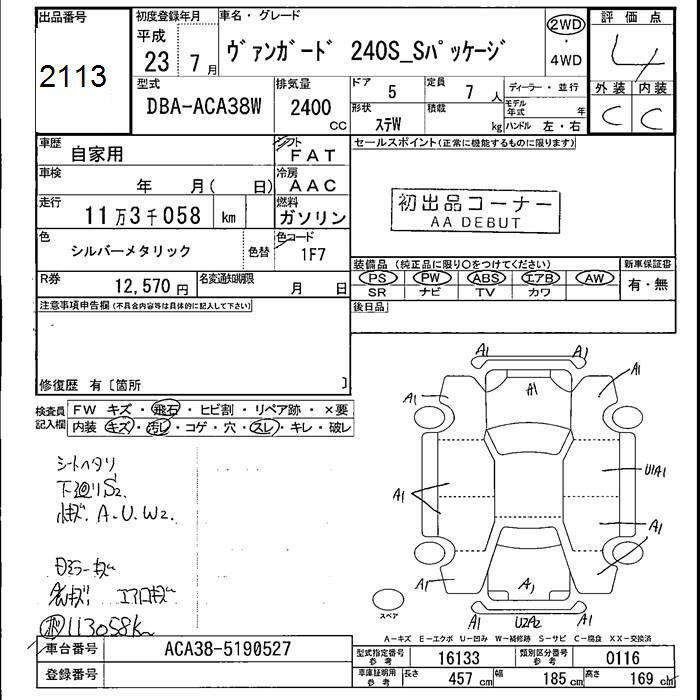 出品番号
2113
初度登録年月
平成
23 7 月
車名・グレード
ヴァンガード 240S_Sパッケージ
2WD
・
4WD
評価点
4
外装 内装
C C
型式
DBA-ACA38W
排気量
2400
CC
ドア
5
定員
7 人
ディーラー・並行
形状
ステW
積載
kg
モデル年式 年
ハンドル 左・右
車歴
自家用
シフト
FAT
車検
年 月( 日)
冷房
AAC
走行
11万3千058 km
燃料
ガソリン
色
シルバーメタリック
色替
色コード
1F7
R券
12,570 円
名変通知期限
月 日
セールスポイント(正常に機能するものに限ります)
初出品コーナー
AA DEBUT
装備品 (純正品に限り〇をつけてください)
新車保証書
PS PW ABS エアB AW
SR ナビ TV カワ
有・無
後日品
注意事項申告欄(不具合内容等は具体的に記入して下さい)
修復歴 有〔箇所 〕
検査員
記入欄
FW キズ・飛石・ヒビ割・リペア跡・×要
内装 キズ・汚レ・コゲ・穴・スレ・キレ・破レ
シートヘタリ
下廻りS2.
小キズ. A.U.W2.
113058K
A1 A1
A1 A1 A1
U1A1
A1
A1
A1 A1 A1
U2A2
スペア
A-キズ E-エクボ U-凹み W-補修跡 S-サビ C-腐食 XX-交換済
車台番号
ACA38-5190527
登録番号
型式指定番号
参考
16133
類別区分番号
参考
0116
車庫証明用
参考
長さ 457 cm 幅 185 cm 高さ 169 cm